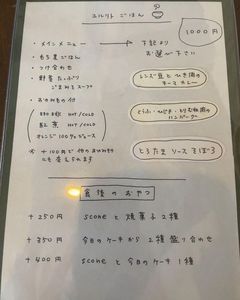 ユルリト ごはん
1000円
・メインメニュー → 下記より
お選び下さい
・もち麦ごはん
・つけ合わせ
・野菜たっぷり
ごまみそスープ
・お飲みもの付
珈琲 HOT/COLD
紅茶 HOT/COLD
オレンジ100%ジュース
※ +100円で他のお飲みもの
にも変えられます
レンズ豆とひき肉の
キーマカレー
とうふ・ひじき・とりむね肉の
ハンバーグ
とろたま ソースそぼろ
食後のおやつ
+250円 sconeと焼菓子2種
+350円 今日のケーキから2種盛り合わせ
+400円 sconeと今日のケーキ1種